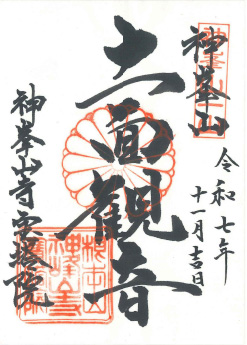 神峯山
令和七年
十一月吉日
十一面観音
神峯山寺宝塔院